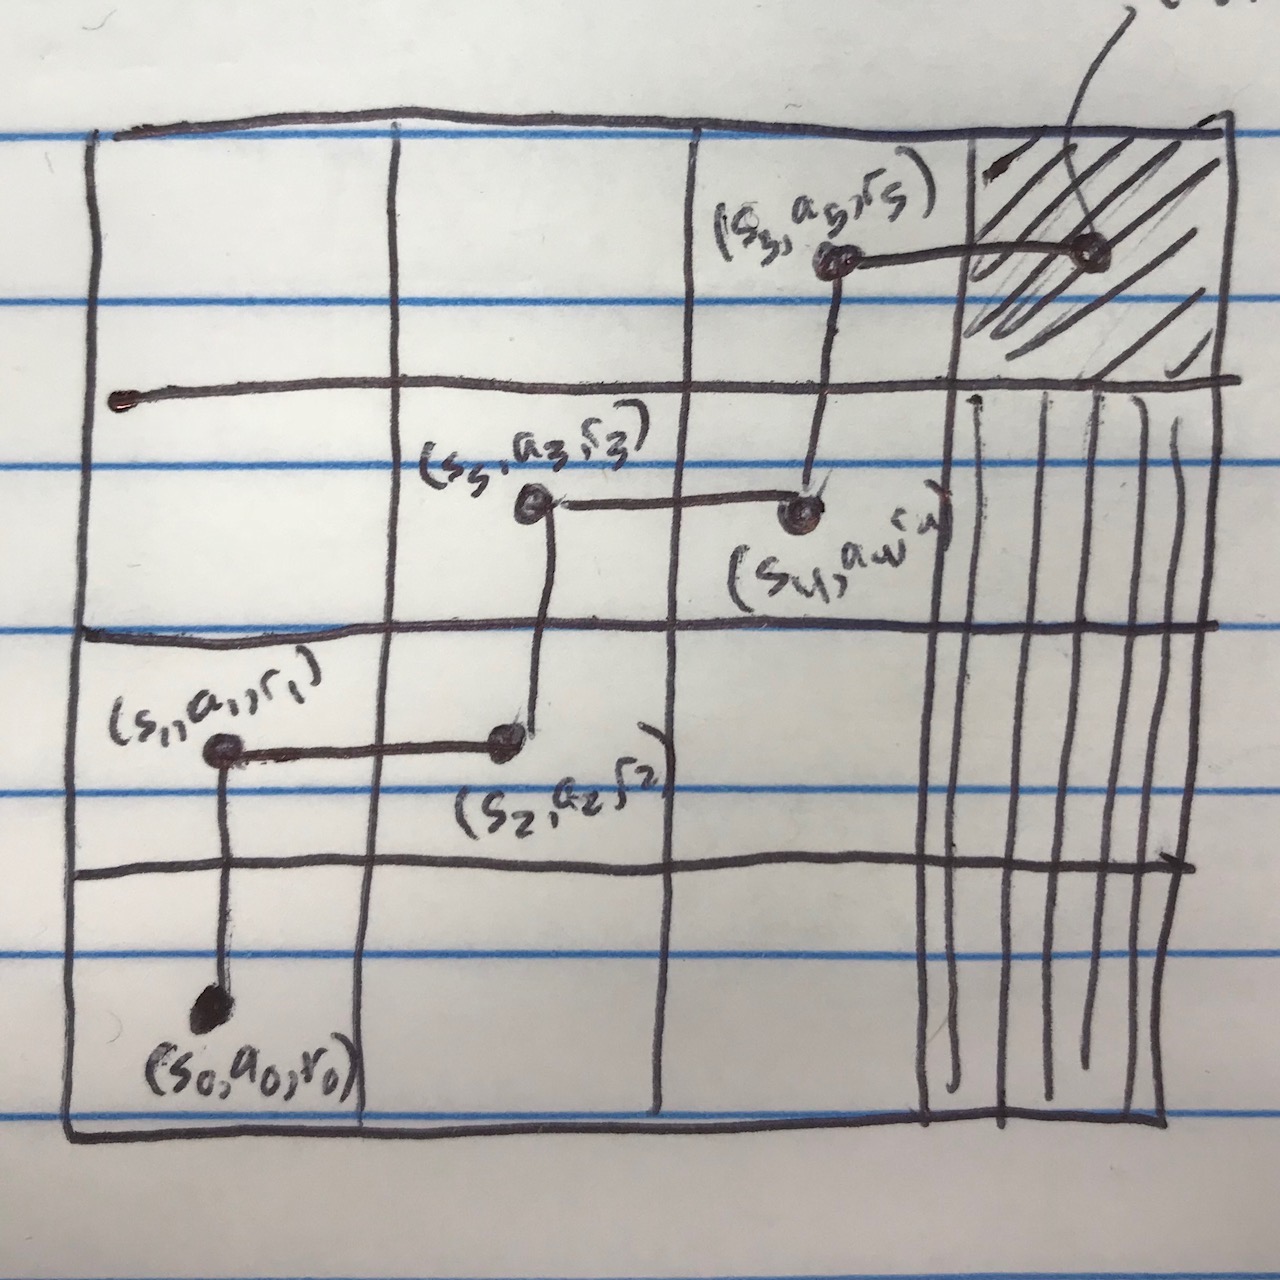 (s₅, a₅, r₅)
(s₅, a₃, r₃)
(s₄, a₄, r₄)
(s₁, a₁, r₁)
(s₂, a₂, r₂)
(s₀, a₀, r₀)